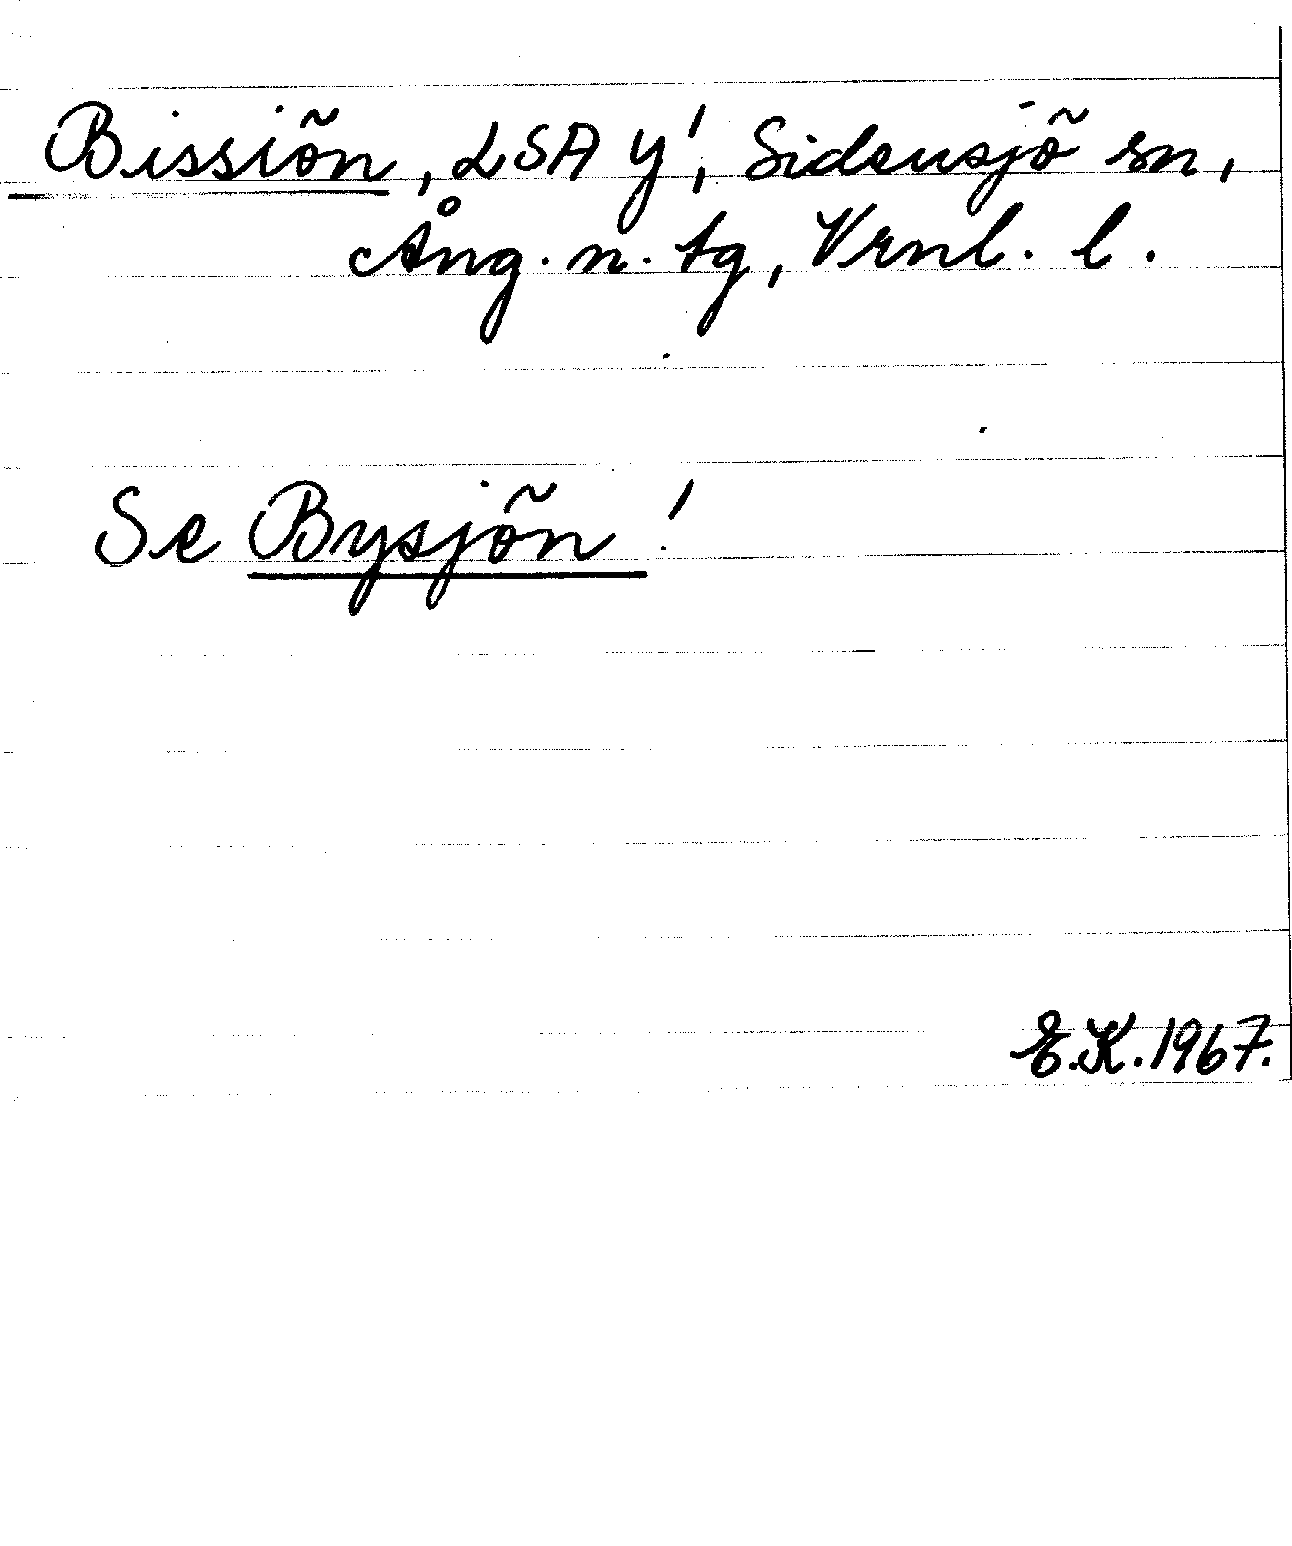 Bissiön, LSA Y', Sidensjö sn,
Ång. n. tg, Vrnl. l.
Se Bysjön!
E.K. 1967.